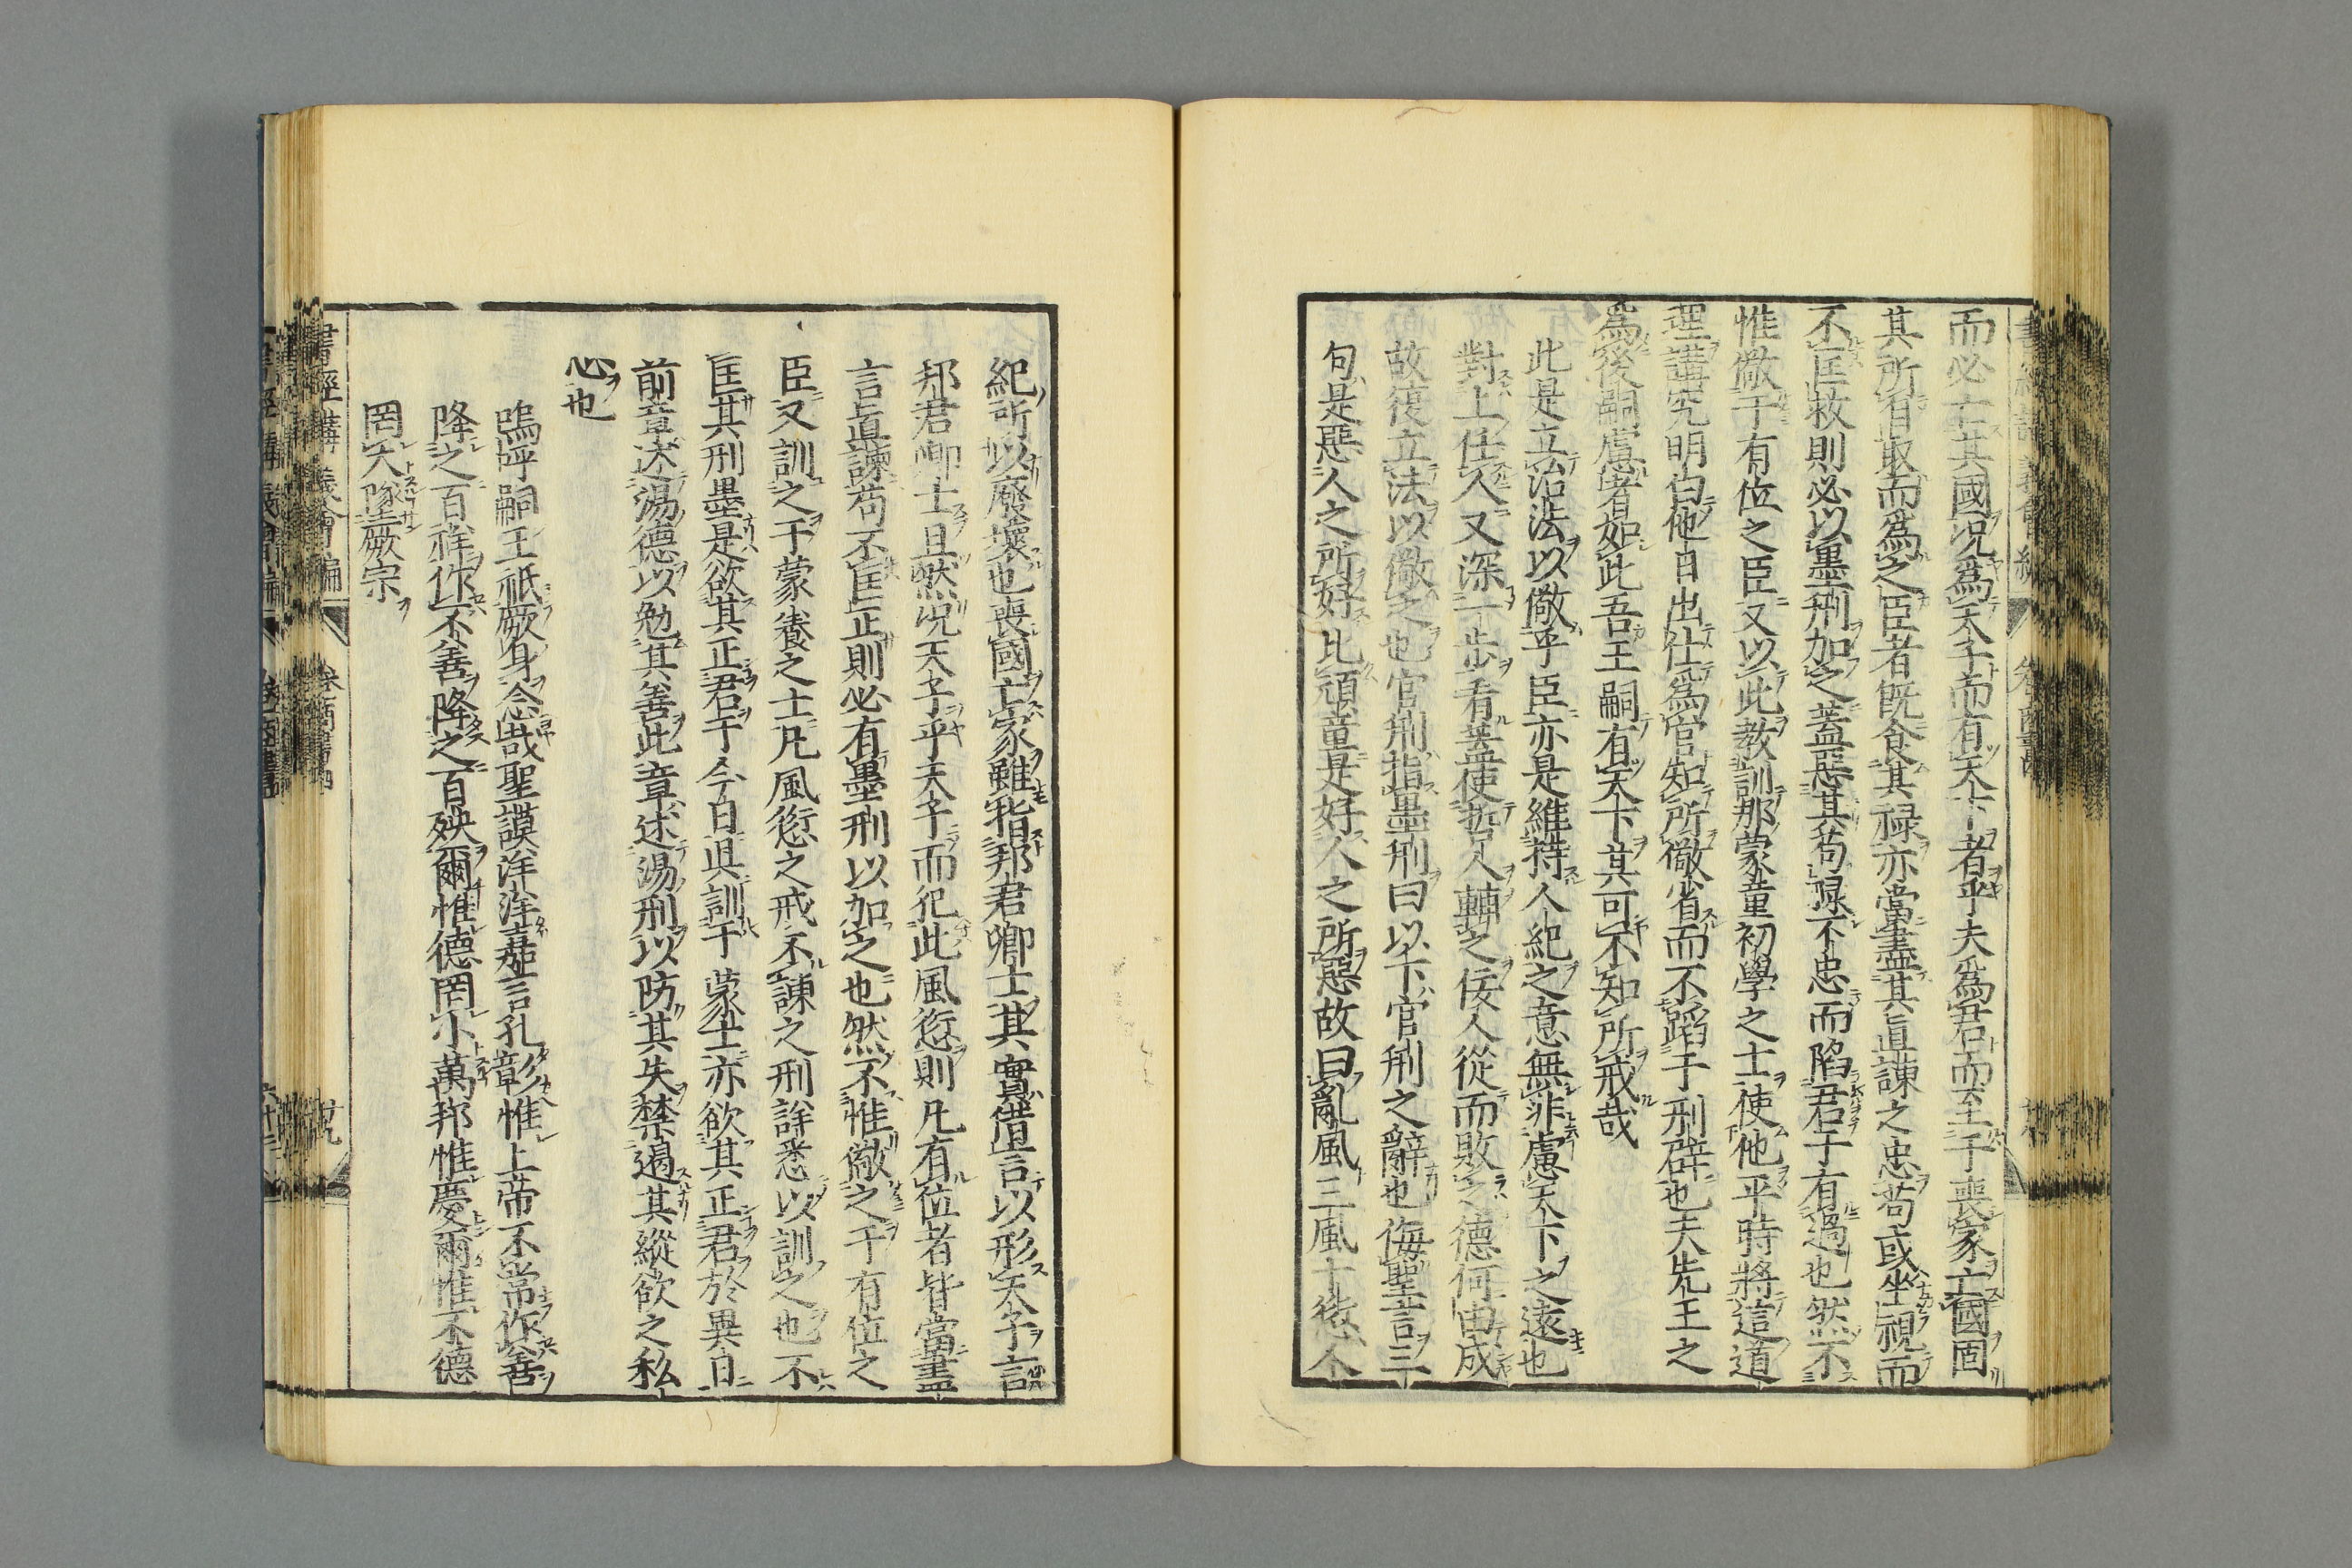 而必亡其國况爲天子而有天下者乎夫爲君而至于喪家亡國固
其所自取而爲之臣者旣食其禄亦當盡其直諌之忠苟或坐視而
不匡救則必以墨刑加之蓋惡其苟祿不忠而陷君于有過也然不
惟儆于有位之臣又以此教訓那蒙童初學之士使他平時將這道
理講究明白他日出仕爲官知所儆省而不蹈于刑辟也夫先王之
爲後嗣慮者如此吾王嗣有天下其可不知所戒哉
此是立治法以儆乎臣亦是維持人紀之意無非慮天下之遠也
對上佞人又深一步看盖使哲人轉之佞人從而敗之德何由成
故復立法以儆之也官刑指墨刑曰以下官刑之辭也侮聖言三
句是惡人之所好比頑童是好人之所惡故曰亂風三風十愆人
紀所以廢壞也喪國亡家雖指邦君卿士其實借言以形天子言
邦君卿士且然况天子乎天子而犯此風愆則凡有位者皆當盡
言直諌苟不匡正則必有墨刑以加之也然不惟儆之于有位之
臣又訓之于蒙養之士凡風愆之戒不諌之刑詳悉以訓之也不
匡其刑墨是欲其正君于今日具訓于蒙士亦欲其正君於異日
前章述湯德以勉其善此章述湯刑以防其失禁遏其縱欲之私
心也
嗚呼嗣王祗厥身念哉聖謨洋洋嘉言孔彰惟上帝不常作善
降之百祥作不善降之百殃爾惟德罔小萬邦惟慶爾惟不德
罔大墜厥宗
書經講義會編